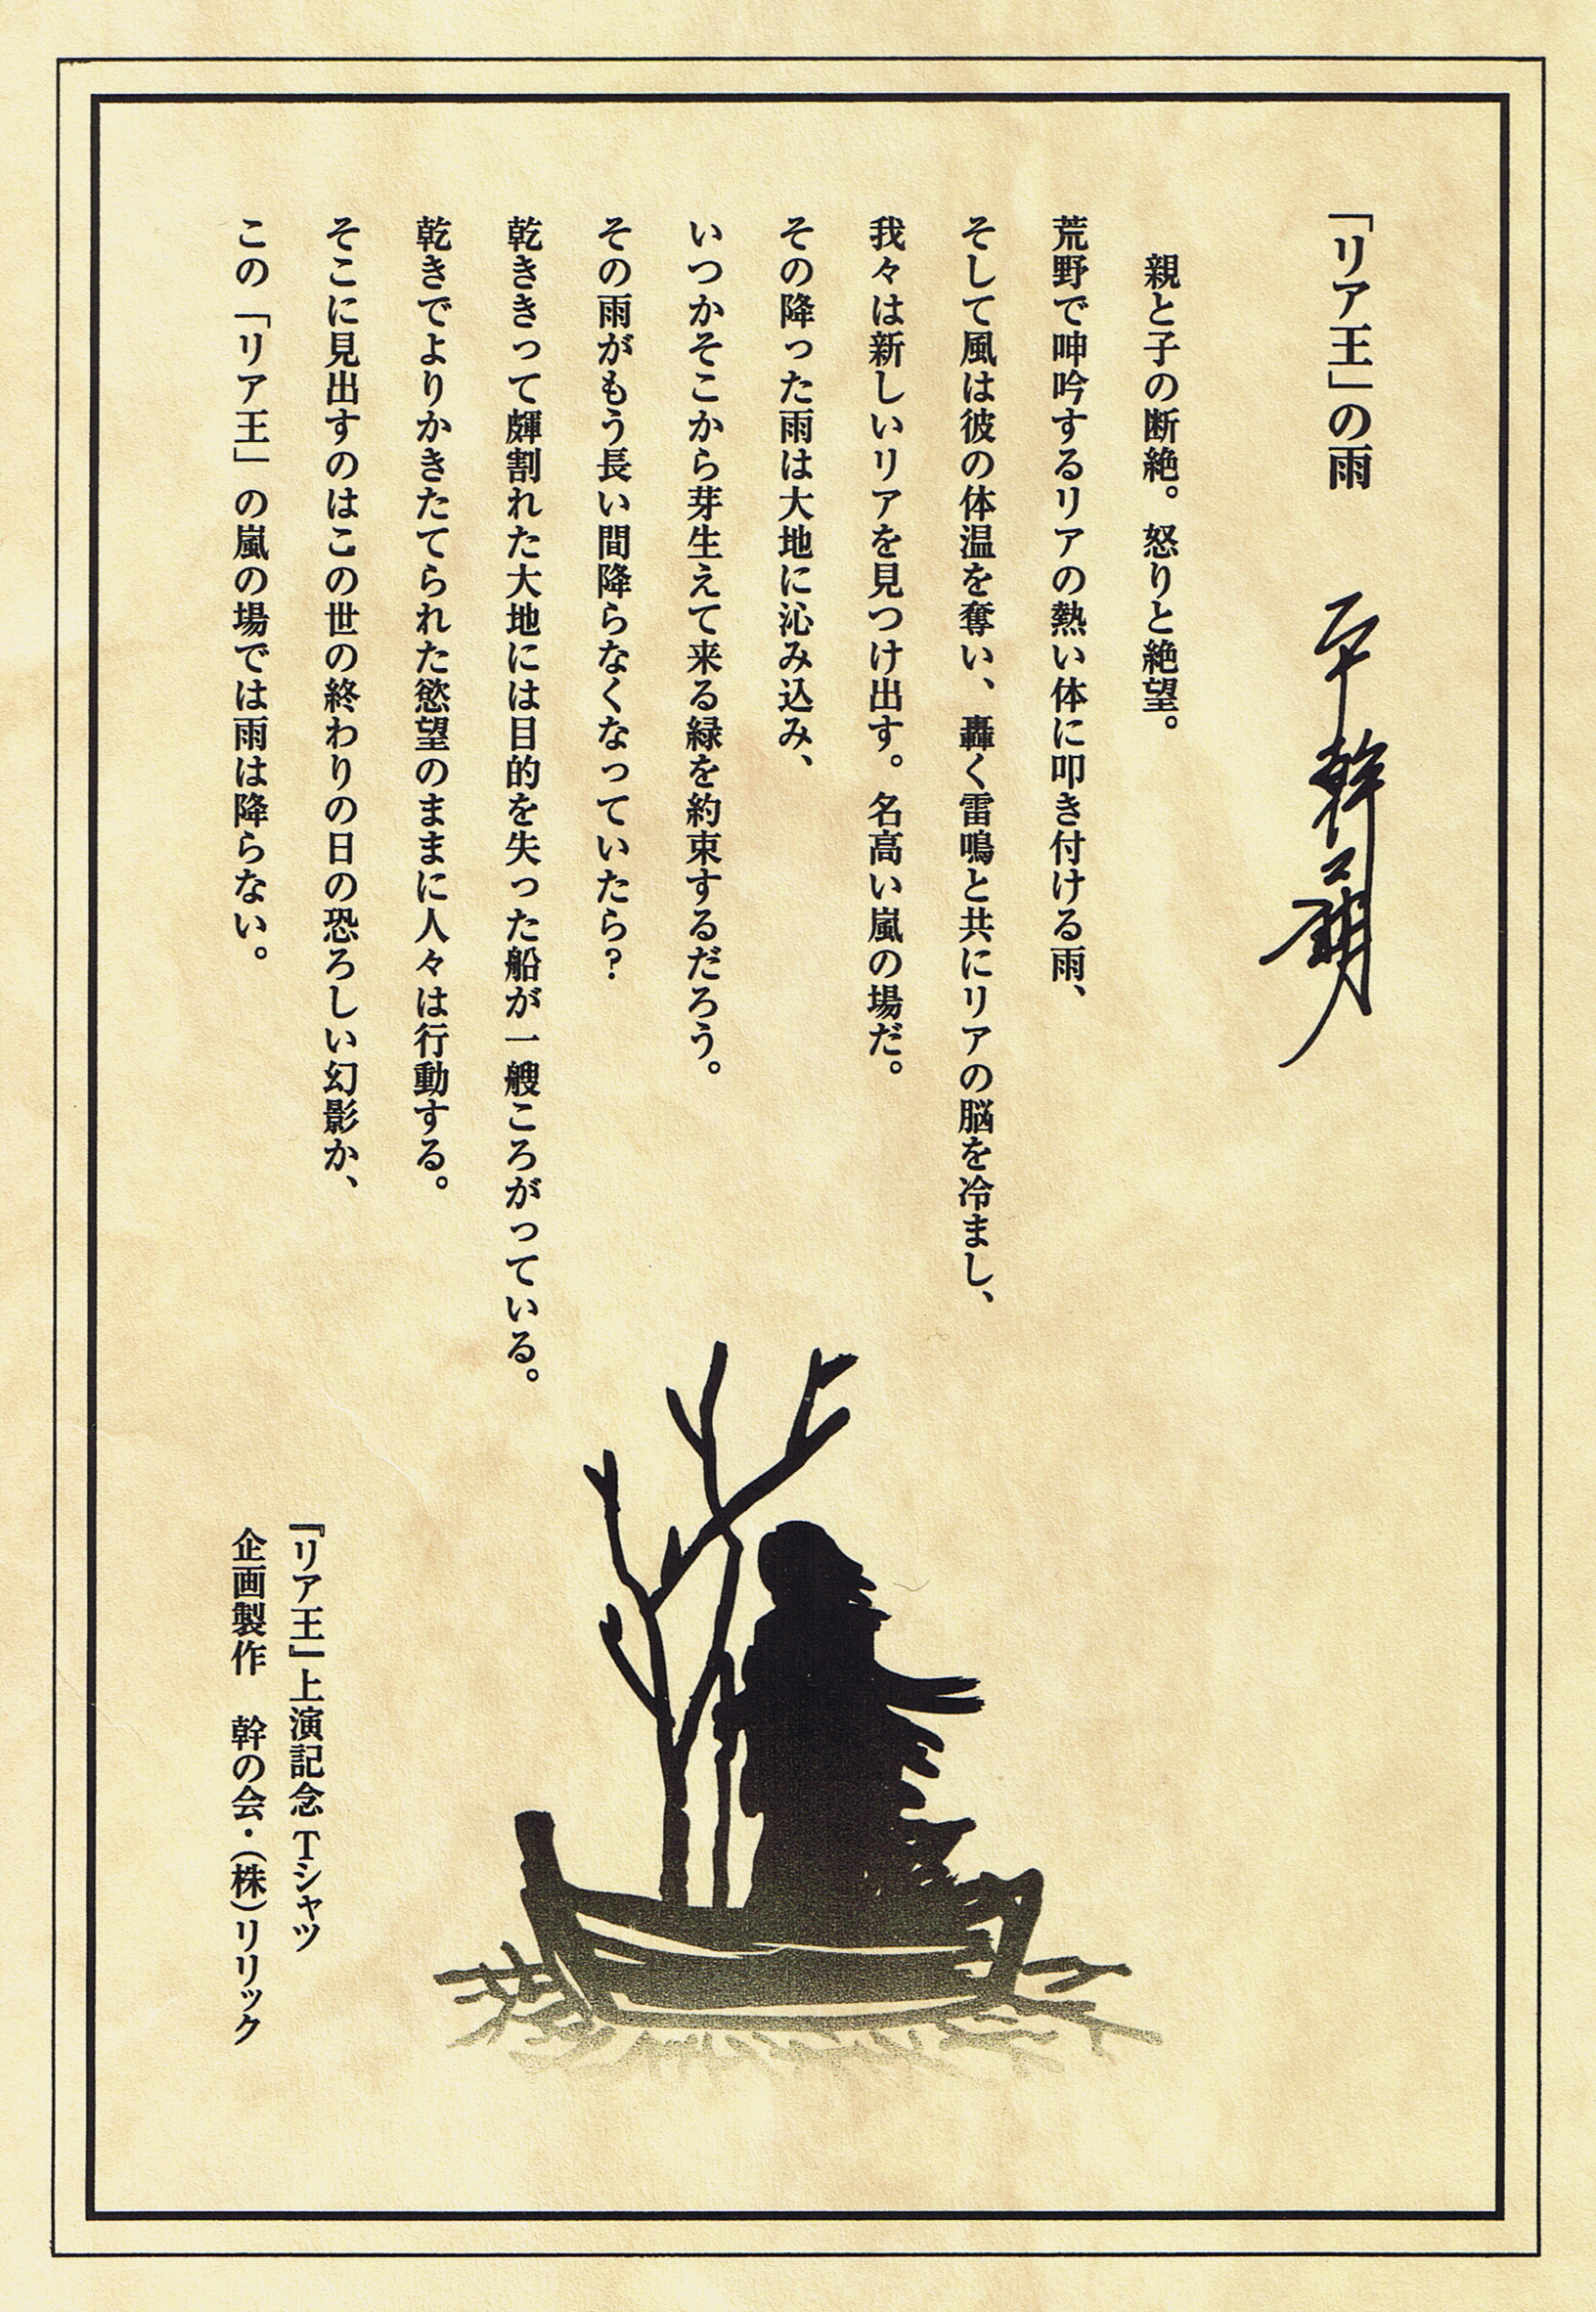 「リア王」の雨
平幹二朗
親と子の断絶。怒りと絶望。
荒野で呻吟するリアの熱い体に叩き付ける雨、
そして風は彼の体温を奪い、轟く雷鳴と共にリアの脳を冷まし、
我々は新しいリアを見つけ出す。名高い嵐の場だ。
その降った雨は大地に沁み込み、
いつかそこから芽生えて来る緑を約束するだろう。
その雨がもう長い間降らなくなっていたら?
乾ききって皹割れた大地には目的を失った船が一艘ころがっている。
乾きでよりかきたてられた慾望のままに人々は行動する。
そこに見出すのはこの世の終わりの日の恐ろしい幻影か、
この「リア王」の嵐の場では雨は降らない。
『リア王』上演記念Tシャツ
企画製作　幹の会・(株)リリック